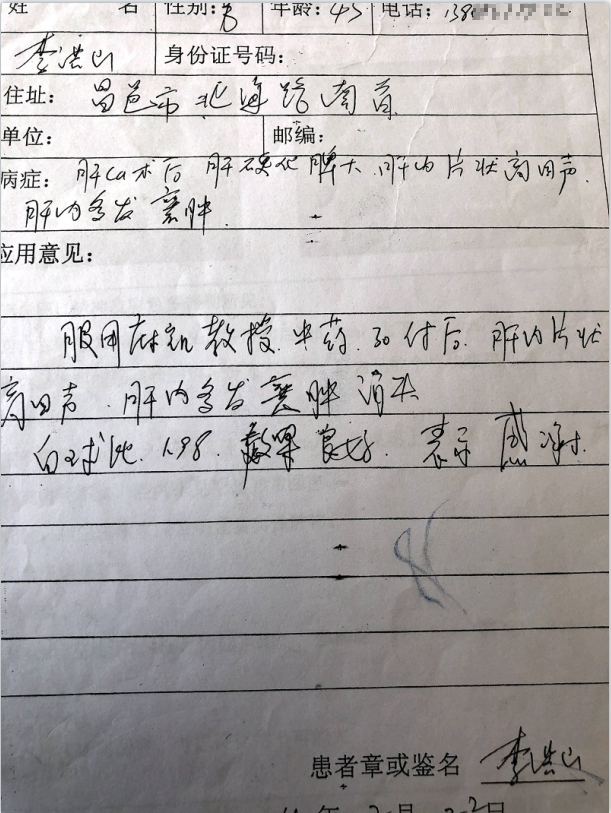 姓 名 性别:男 年龄:45 电话:138
李洪山 身份证号码:
住址: 昌邑市北海路南首
单位: 邮编:
病症: 肝Ca术后 肝硬化 脾大 肝内片状高回声.
肝内多发囊肿.
应用意见:
服用 教授中药.30付后.肝内片状
高回声.肝内多发囊肿消失
白球比.1.98.效果良好.表示感谢.
患者章或鉴名 李洪山
年 月 2日